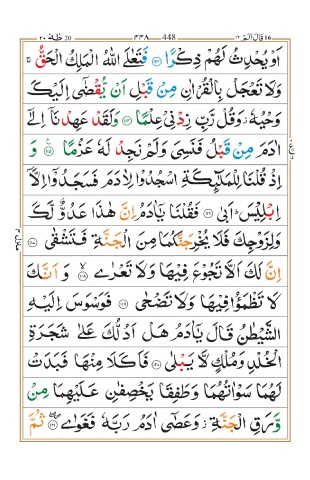 قال الم ١٦ 448 ٤٤٨ طٰهٰ ٢٠ 20
اَوْ یُحْدِثُ لَهُمْ ذِكْرًا ﴿۱۱۳﴾ فَتَعٰلَی اللّٰهُ الْمَلِكُ الْحَقُّ ۚ
وَلَا تَعْجَلْ بِالْقُرْاٰنِ مِنْ قَبْلِ اَنْ یُّقْضٰۤی اِلَیْكَ
وَحْیُهٗ ؗ وَقُلْ رَّبِّ زِدْنِیْ عِلْمًا ﴿۱۱۴﴾ وَلَقَدْ عَهِدْنَاۤ اِلٰۤی
اٰدَمَ مِنْ قَبْلُ فَنَسِیَ وَلَمْ نَجِدْ لَهٗ عَزْمًا ﴿۱۱۵﴾ وَ
اِذْ قُلْنَا لِلْمَلٰٓئِكَةِ اسْجُدُوْا لِاٰدَمَ فَسَجَدُوْۤا اِلَّاۤ
اِبْلِیْسَ ؕ اَبٰی ﴿۱۱۶﴾ فَقُلْنَا یٰۤاٰدَمُ اِنَّ هٰذَا عَدُوٌّ لَّكَ
وَلِزَوْجِكَ فَلَا یُخْرِجَنَّكُمَا مِنَ الْجَنَّةِ فَتَشْقٰی ﴿۱۱۷﴾
اِنَّ لَكَ اَلَّا تَجُوْعَ فِیْهَا وَلَا تَعْرٰی ﴿۱۱۸﴾ وَ اَنَّكَ
لَا تَظْمَؤُا فِیْهَا وَلَا تَضْحٰی ﴿۱۱۹﴾ فَوَسْوَسَ اِلَیْهِ
الشَّیْطٰنُ قَالَ یٰۤاٰدَمُ هَلْ اَدُلُّكَ عَلٰی شَجَرَةِ
الْخُلْدِ وَمُلْكٍ لَّا یَبْلٰی ﴿۱۲۰﴾ فَاَكَلَا مِنْهَا فَبَدَتْ
لَهُمَا سَوْاٰتُهُمَا وَطَفِقَا یَخْصِفٰنِ عَلَیْهِمَا مِنْ
وَّرَقِ الْجَنَّةِ ؗ وَعَصٰۤی اٰدَمُ رَبَّهٗ فَغَوٰی ﴿۱۲۱﴾ ثُمَّ